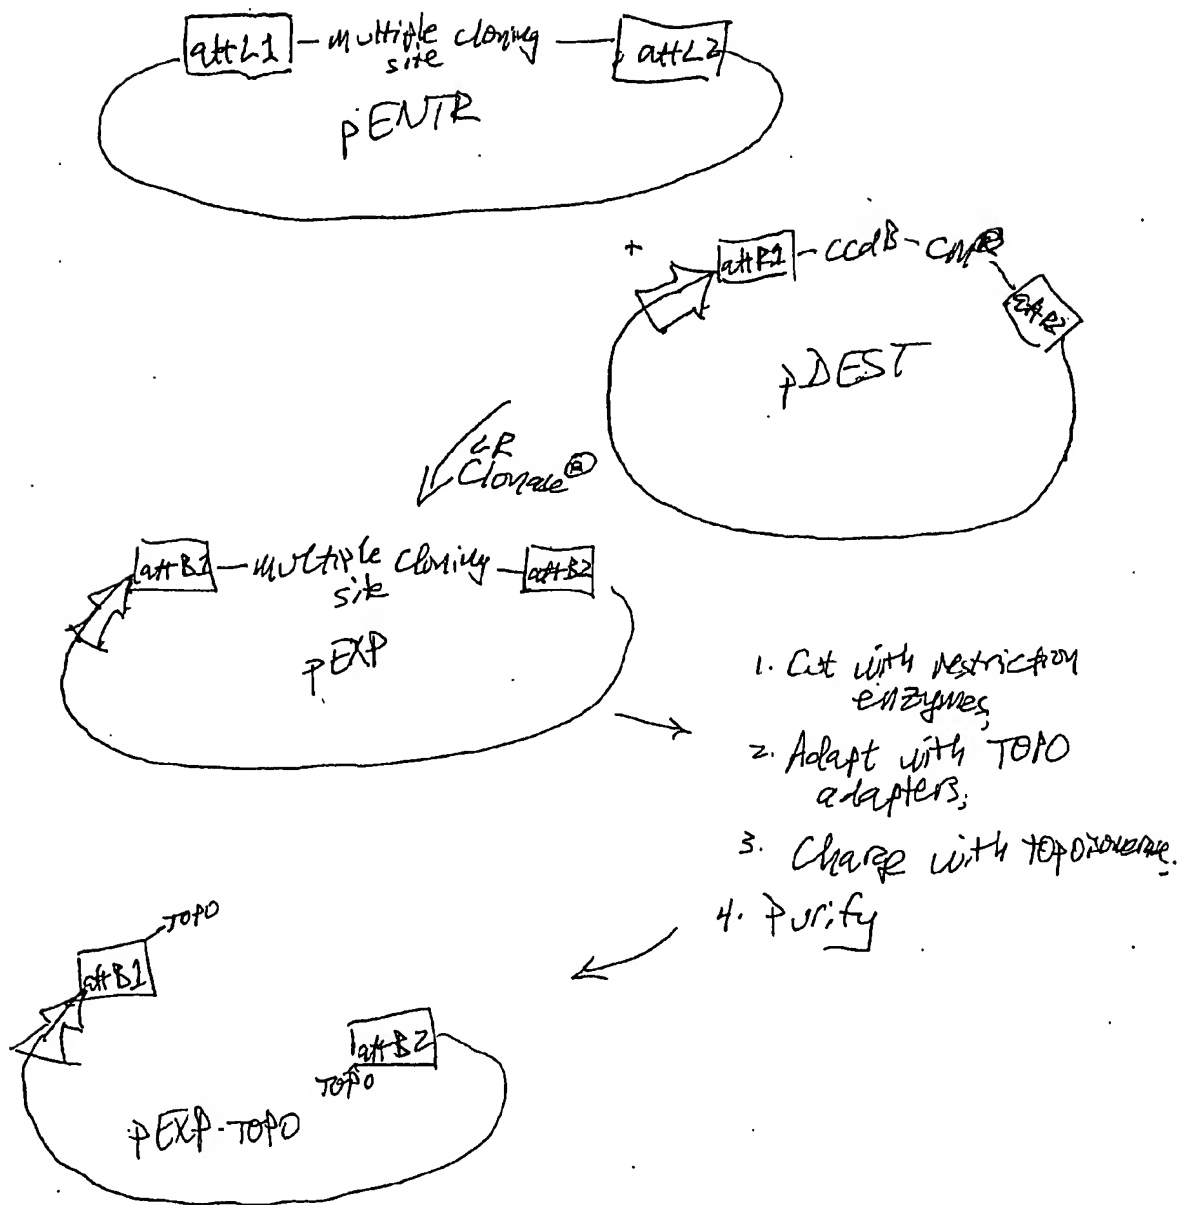 attL1 — multiple cloning — attL2
site
pENTR
+
attR1 - ccdB - CmR
attR2
pDEST
LR
Clonase®
attB1 — multiple cloning — attB2
site
pEXP
1. Cut with restriction
enzymes;
2. Adapt with TOPO
adapters;
3. Charge with topoisomerase.
4. Purify
TOPO
attB1
attB2
TOPO
pEXP-TOPO